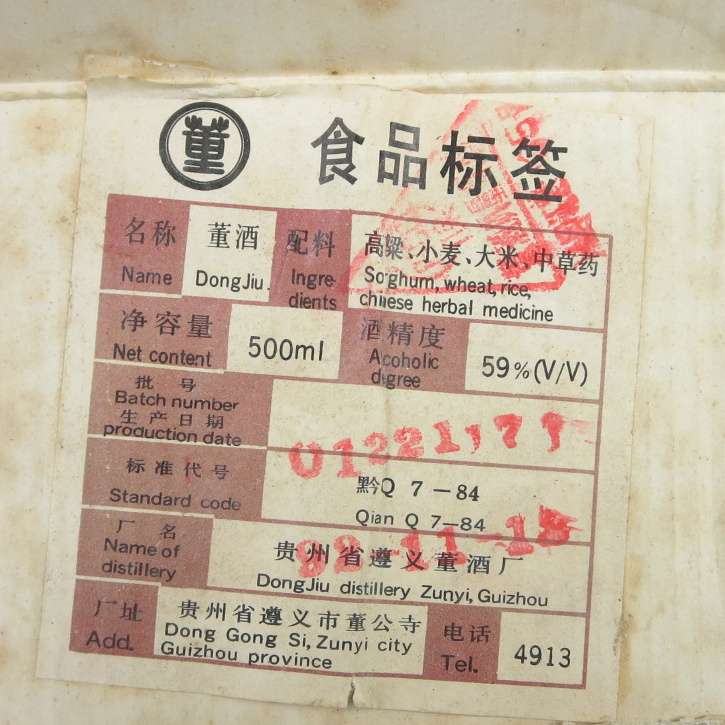 董
食品标签
名称 董酒 配料 高粱、小麦、大米、中草药
Name DongJiu. Ingre Sorghum, wheat, rice,
dients chinese herbal medicine
净容量 500ml 酒精度 59%(V/V)
Net content Acoholic
degree
批号
Batch number
生产日期
production date
01221171
标准代号 黔Q 7-84
Standard code Qian Q 7-84
厂名 贵州省遵义董酒厂
Name of DongJiu distillery Zunyi, Guizhou
distillery
厂址 贵州省遵义市董公寺 电话 4913
Add. Dong Gong Si, Zunyi city Tel.
Guizhou province